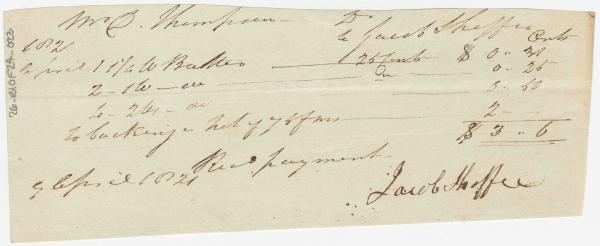 Mr D. Thompson Dr
to Jacob Shaffer
1821 Cents
April 1 1½ lb Butter 25 Cents $ 0 " 38
2 - 1 lb - do Do 0 - 25
6 - 2 lbs - do 0 - 50
to a het of 2 -
$ 3 " 6
9 April 1821 Recd payment
Jacob Shaffer